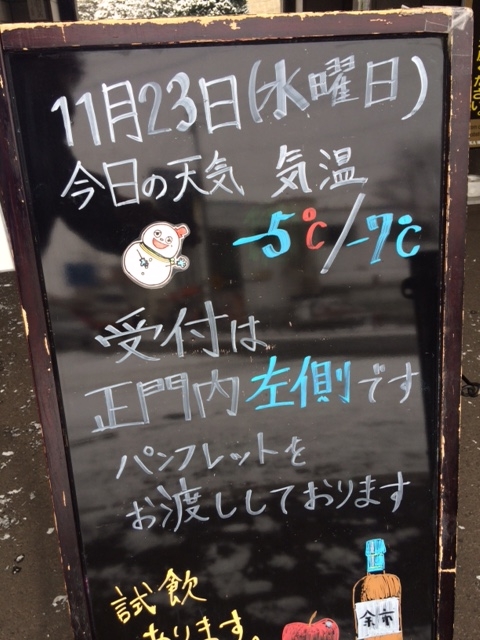 11月23日(水曜日)
今日の天気 気温
-5℃/-7℃
受付は
正門内左側です
パンフレットを
お渡ししております
試飲
あります。
余市